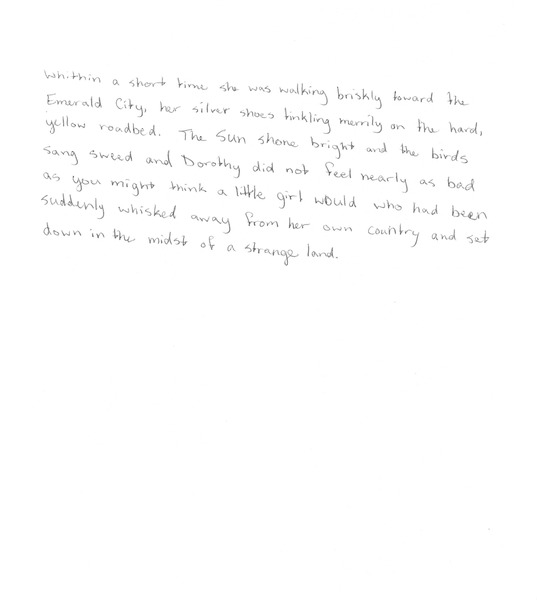 Whithin a short time she was walking briskly toward the
Emerald City, her silver shoes tinkling merrily on the hard,
yellow roadbed. The Sun shone bright and the birds
sang sweed and Dorothy did not feel nearly as bad
as you might think a little girl would who had been
suddenly whisked away from her own country and set
down in the midst of a strange land.